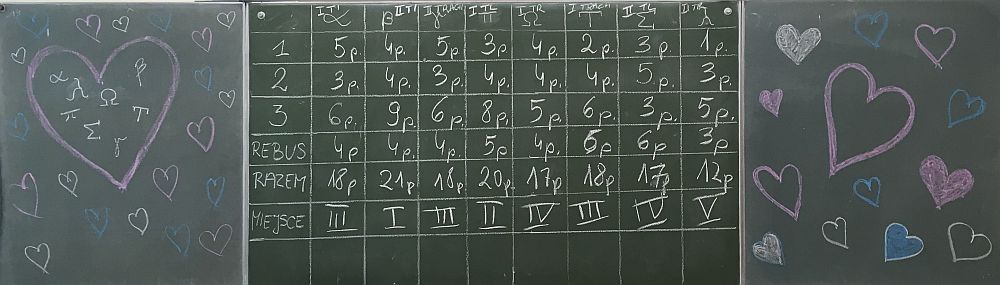 α β λ Ω π T Σ γ
I T1 II T1 I TRACH I TL I TR I TRACH II TL II TR
α β γ π Ω T Σ λ
1 5p. 4p. 5p. 3p. 4p. 2p. 3p. 1p.
2 3p. 4p. 3p. 4p. 4p. 4p. 5p. 3p.
3 6p. 9p. 6p. 8p. 5p. 6p. 3p. 5p.
REBUS 4p 4p. 4p. 5p 4p. 6p 6p 3p
RAZEM 18p 21p 18p 20p 17p 18p 17p 12p
MIEJSCE III I III II IV III IV V